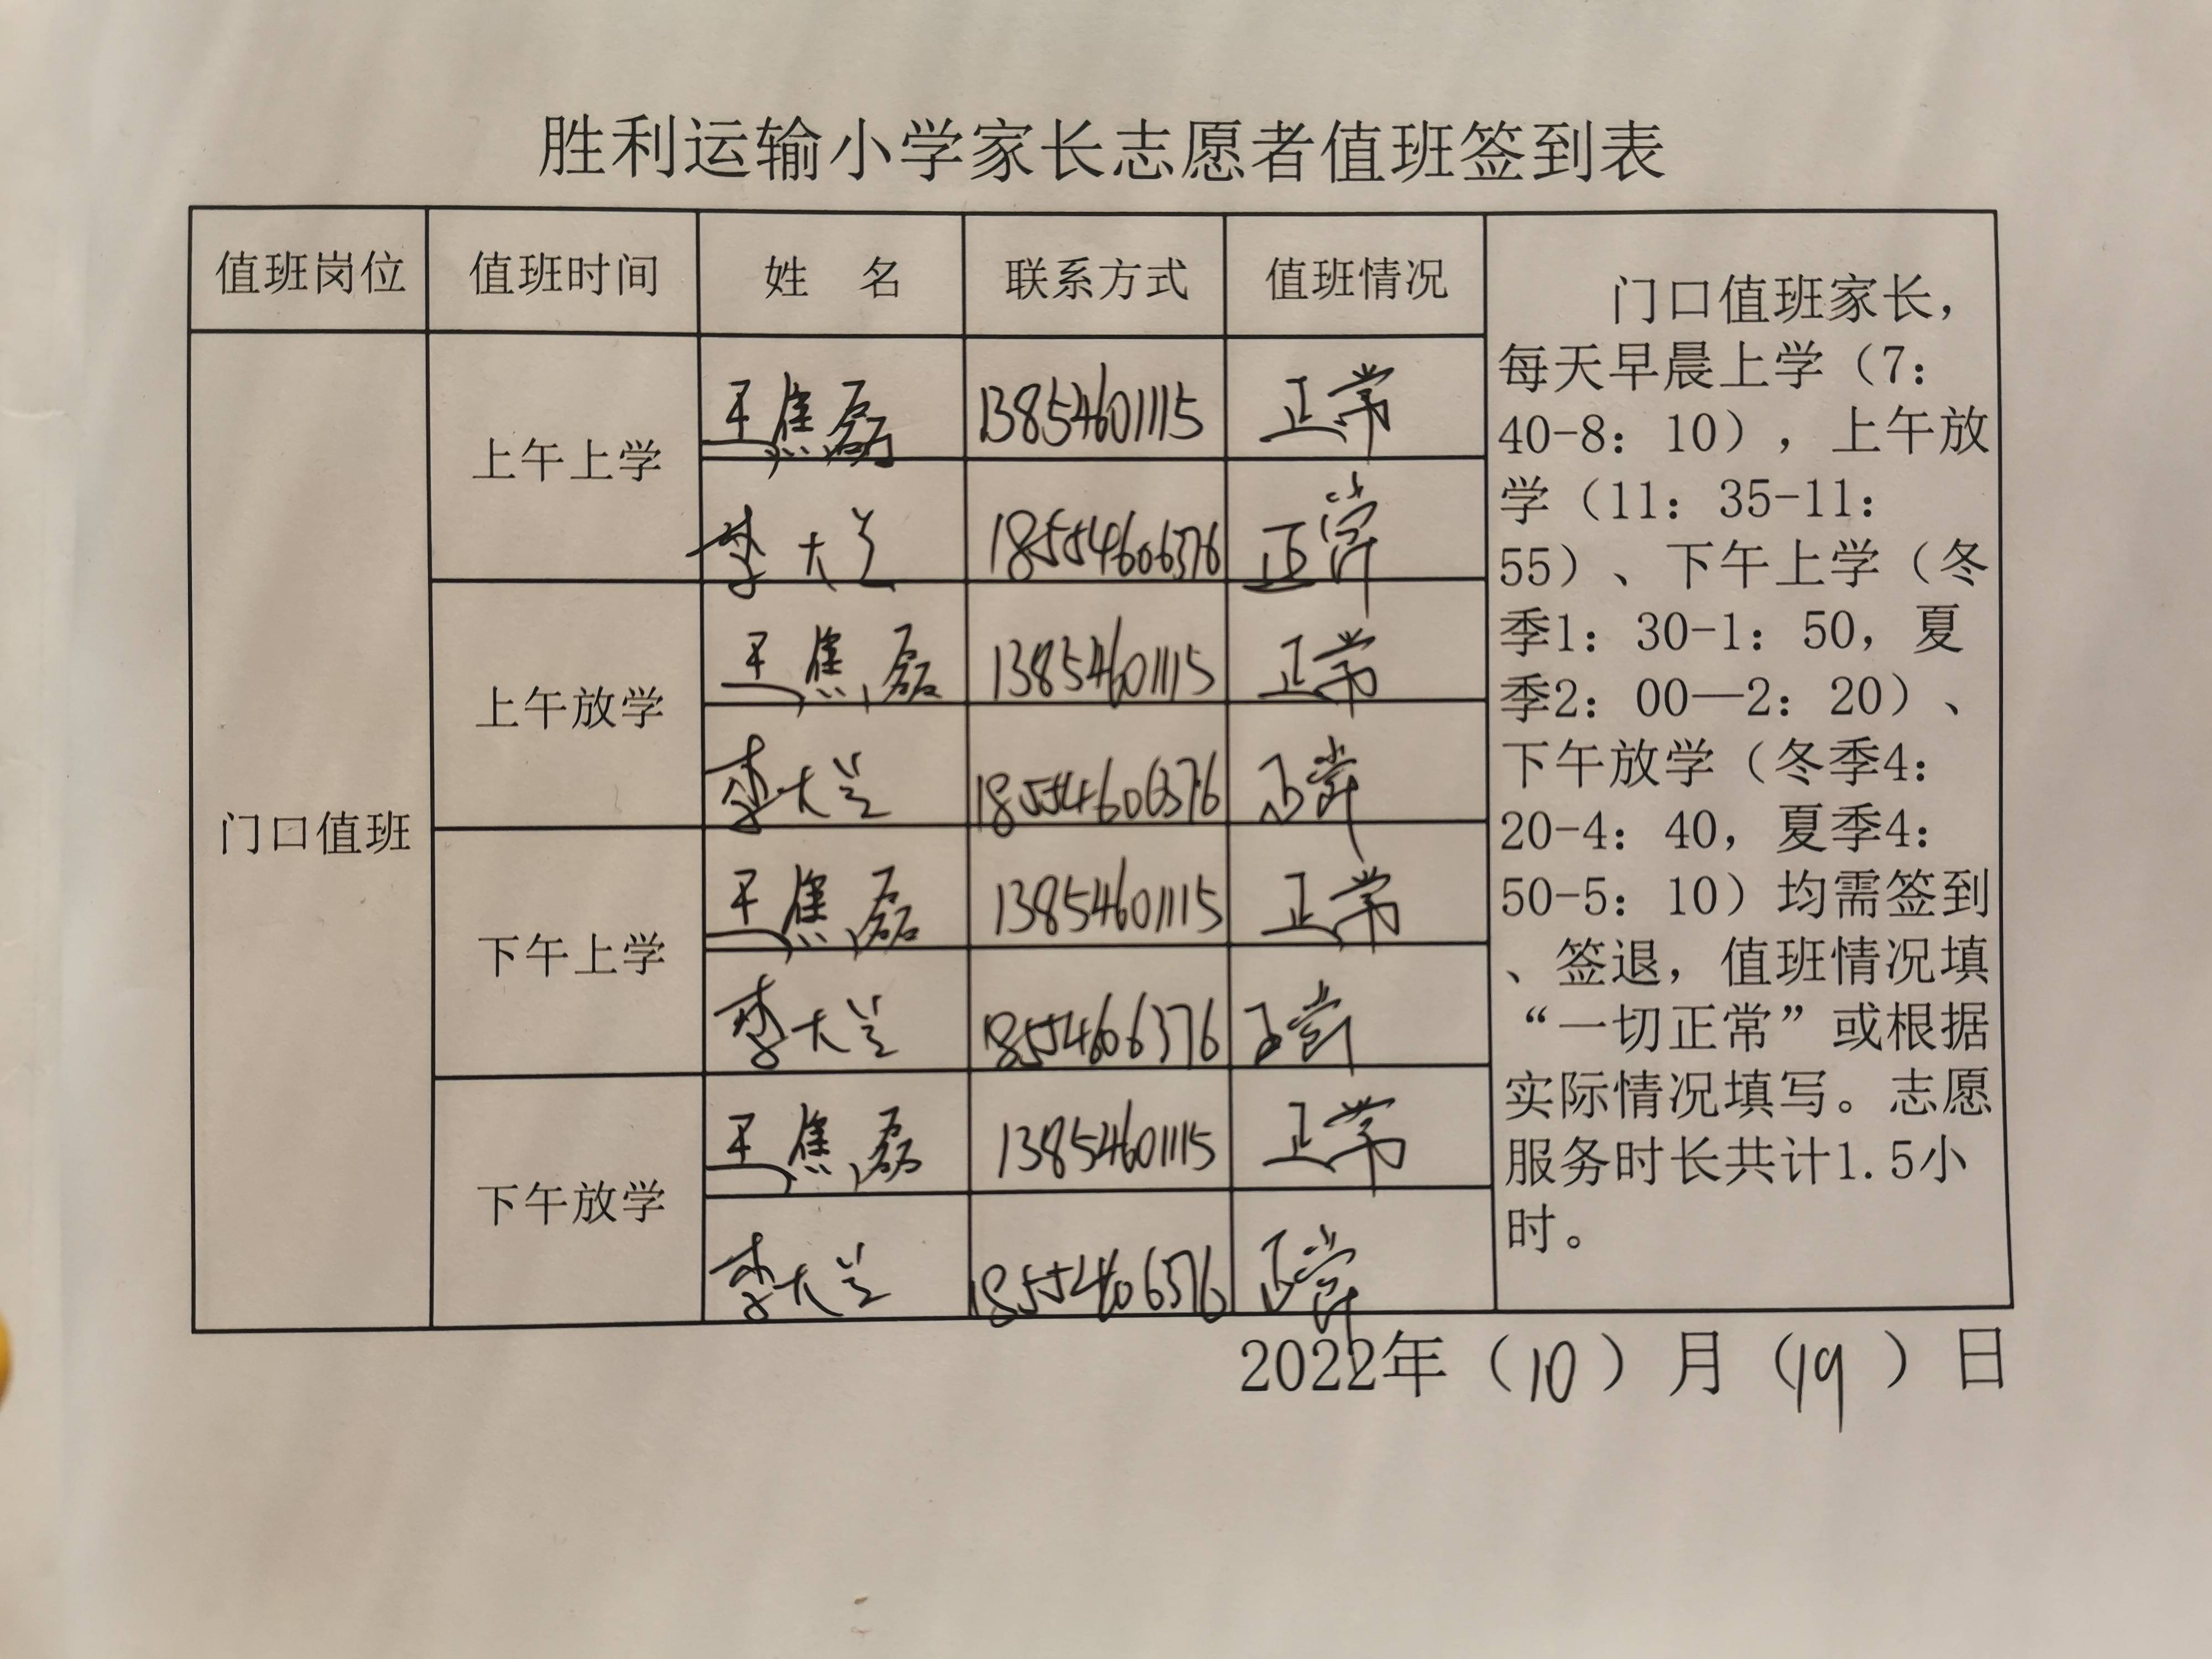 胜利运输小学家长志愿者值班签到表
值班岗位 值班时间 姓 名 联系方式 值班情况
门口值班
上午上学
王焦磊 13854601115 正常
李大兰 18554606376 正常
上午放学
王焦磊 13854601115 正常
李大兰 18554606376 正常
下午上学
王焦磊 13854601115 正常
李大兰 18554606376 正常
下午放学
王焦磊 13854601115 正常
李大兰 18554606376 正常
门口值班家长，
每天早晨上学（7：
40-8：10），上午放
学（11：35-11：
55）、下午上学（冬
季1：30-1：50，夏
季2：00—2：20）、
下午放学（冬季4：
20-4：40，夏季4：
50-5：10）均需签到
、签退，值班情况填
“一切正常”或根据
实际情况填写。志愿
服务时长共计1.5小
时。
2022年（10）月（19）日